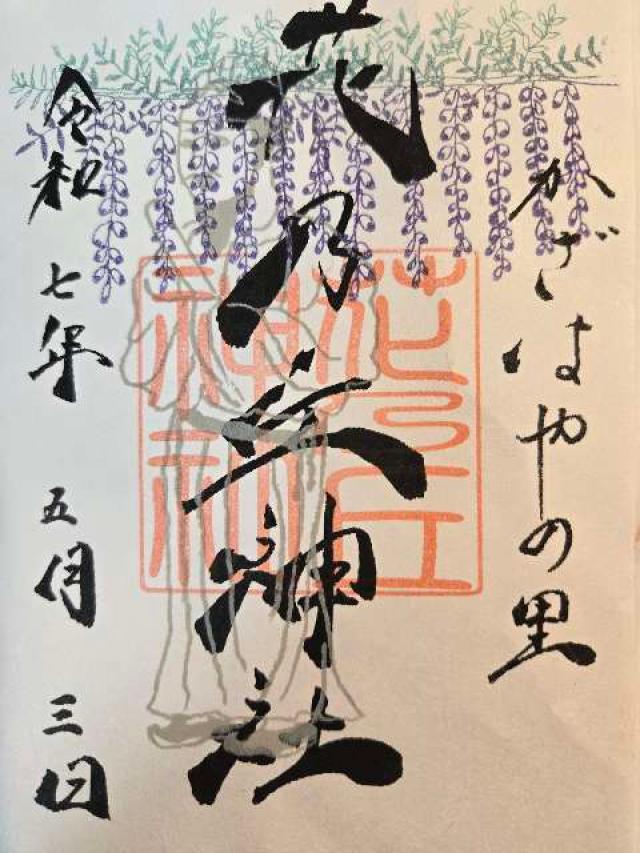 かざはやの里
花乃丘神社
花乃丘
神社
令和七年五月三日